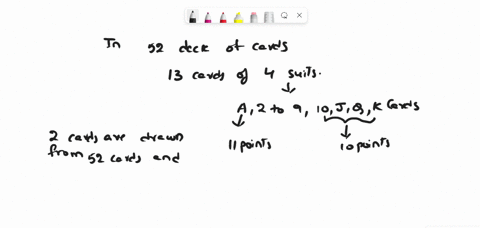 In 52 deck of cards
13 cards of 4 suits.
A, 2 to 9, 10, J, Q, K Cards
11 points
10 points
2 cards are drawn
from 52 cards and